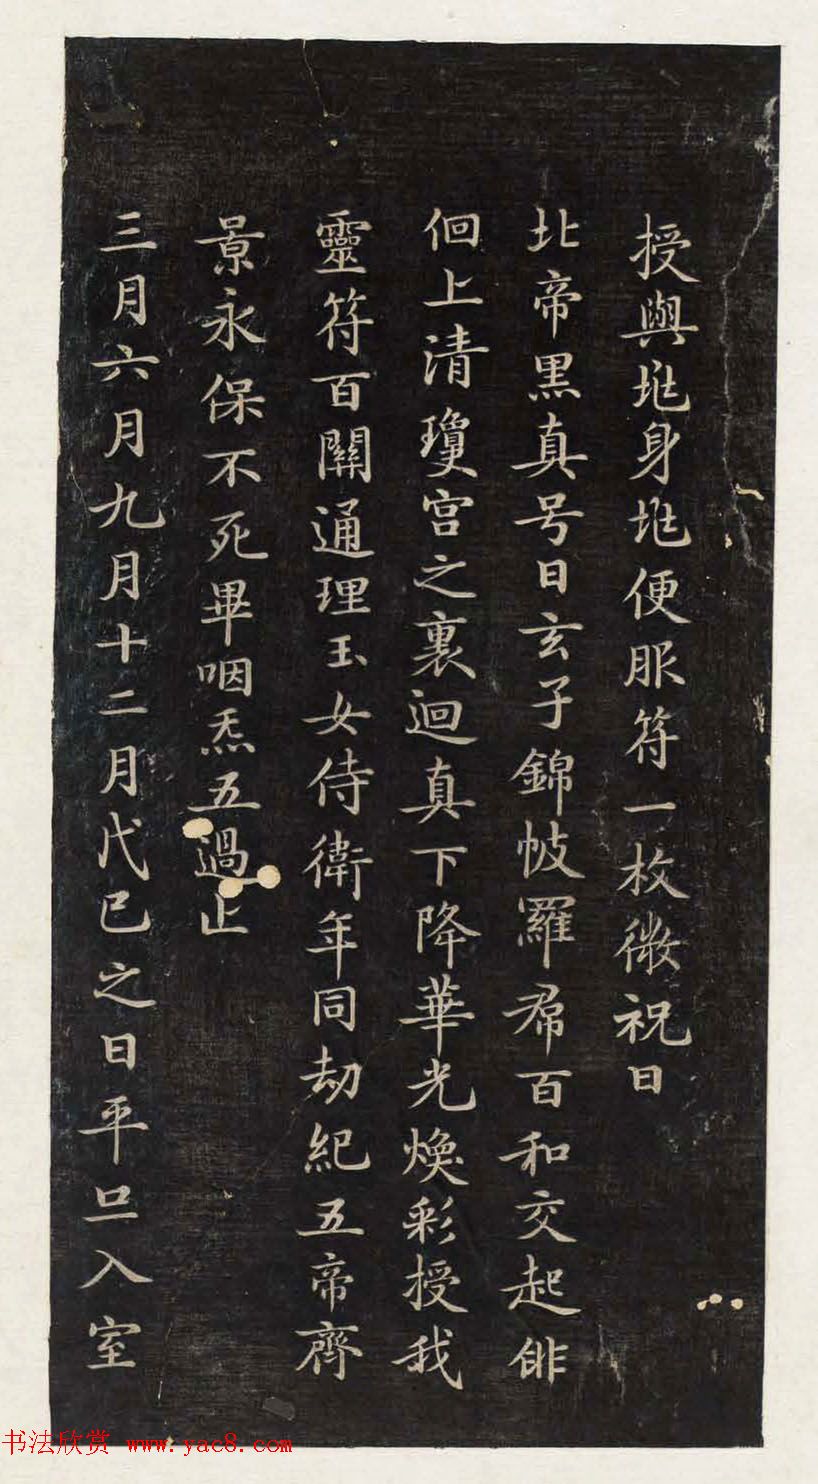 授與兆身兆便服符一枚微祝曰
北帝黑真号曰玄子錦帔羅帬百和交起俳
佪上清瓊宫之裏迴真下降華光煥彩授我
靈符百關通理玉女侍衛年同劫紀五帝齊
景永保不死畢咽炁五過止
三月六月九月十二月戊己之日平旦入室
书法欣赏 www.yac8.com